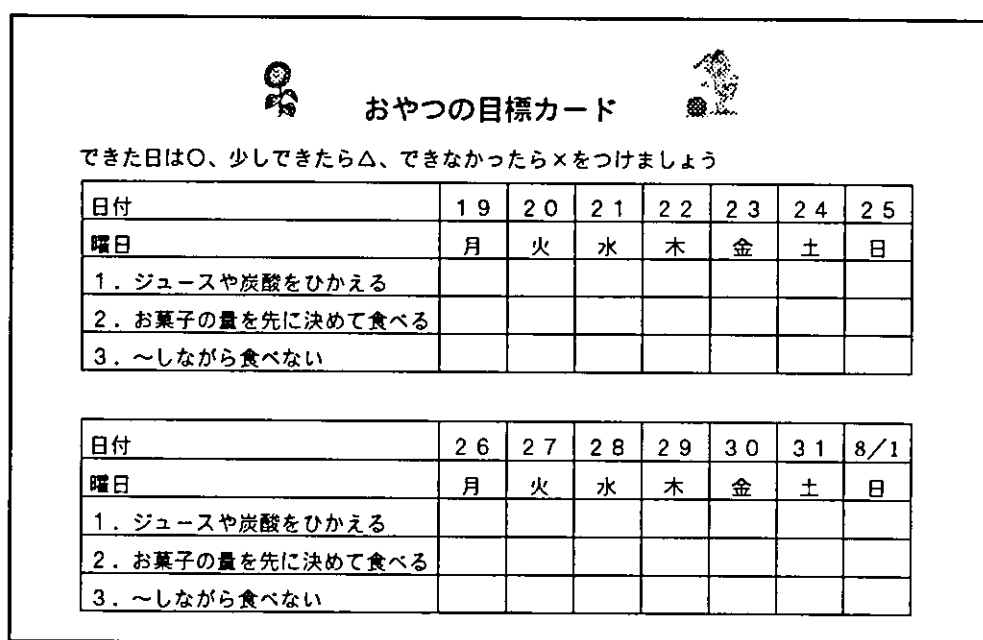 おやつの目標カード
できた日は○、少しできたら△、できなかったら×をつけましょう
日付 19 20 21 22 23 24 25
曜日 月 火 水 木 金 土 日
1．ジュースや炭酸をひかえる
2．お菓子の量を先に決めて食べる
3．～しながら食べない
日付 26 27 28 29 30 31 8/1
曜日 月 火 水 木 金 土 日
1．ジュースや炭酸をひかえる
2．お菓子の量を先に決めて食べる
3．～しながら食べない